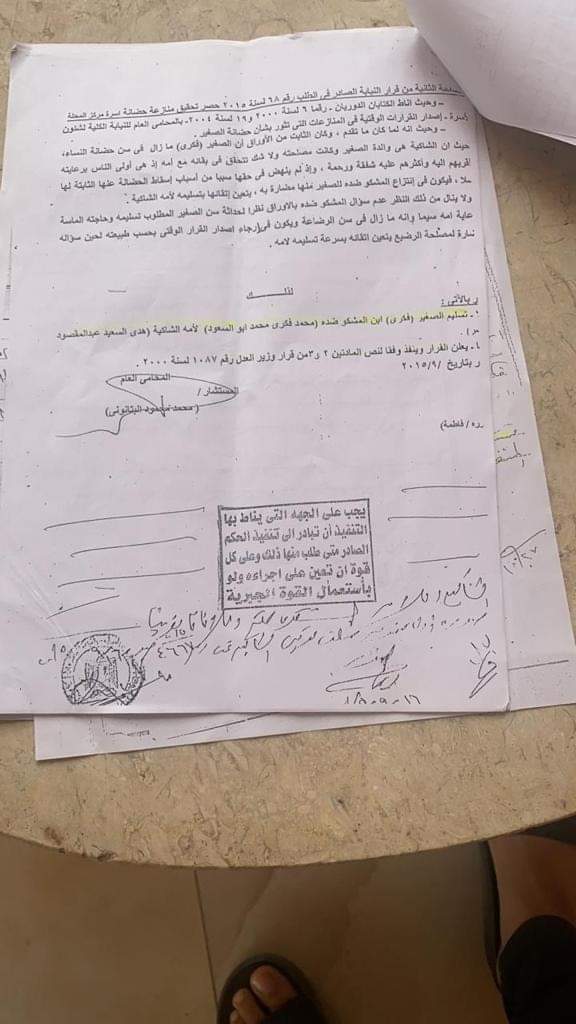 الثانية من قرار النيابة الصادر فى الطلب رقم ٦٨ لسنة ٢٠١٥ حصر تحقيق منازعة حضانة اسرة مركز المحلة
ـ وحيث ناط الكتابان الدوريان ـ رقما ٦ لسنة ٢٠٠٠ و١٩ لسنة ٢٠٠٤ـ بالمحامى العام للنيابة الكلية لشئون
لأسرة ـ إصدار القرارات الوقتية فى المنازعات التى تثور بشأن حضانة الصغير.
ـ وحيث انه لما كان ما تقدم ، وكان الثابت من الأوراق أن الصغير (فكرى) ما زال فى سن حضانة النساء،
حيث ان الشاكية هى والدة الصغير وكانت مصلحته ولا شك تتحقق فى بقائه مع امه إذ هى أولى الناس برعايته
اقربهم اليه وأكثرهم عليه شفقة ورحمة ، وإذ لم ينهض فى حقها سببا من أسباب إسقاط الحضانة عنها الثابتة لها
، فيكون فى إنتزاع المشكو ضده للصغير منها مضارة به ، يتعين إتقائها بتسليمه لأمه الشاكية .
ولا ينال من ذلك النظر عدم سؤال المشكو ضده بالاوراق نظرا لحداثة سن الصغير المطلوب تسليمه وحاجته الماسة
عاية امه سيما وانه ما زال فى سن الرضاعة ويكون فى إرجاء إصدار القرار الوقتى بحسب طبيعته لحين سؤاله
ضارة لمصلحة الرضيع يتعين اتقائه بسرعة تسليمه لامه .
لذلك
ر بالآتى :
١ـ تسليم الصغير (فكرى) ابن المشكو ضده (محمد فكرى محمد ابو السعود) لأمه الشاكية (هدى السعيد عبدالمقصود
٤ـ يعلن القرار وينفذ وفقا لنص المادتين ٢ و٣من قرار وزير العدل رقم ١٠٨٧ لسنة ٢٠٠٠ .
ر بتاريخ /٢٠١٥/٩
المحامى العام
المستشار /
(محمد محمود البتانونى)
ره / فاطمة)
يجب على الجهه التى يناط بها
التنفيذ أن تبادر الى تنفيذ الحكم
الصادر متى طلب منها ذلك وعلى كل
قوة ان تعين على اجراءه ولو
بأستعمال القوة الجبرية